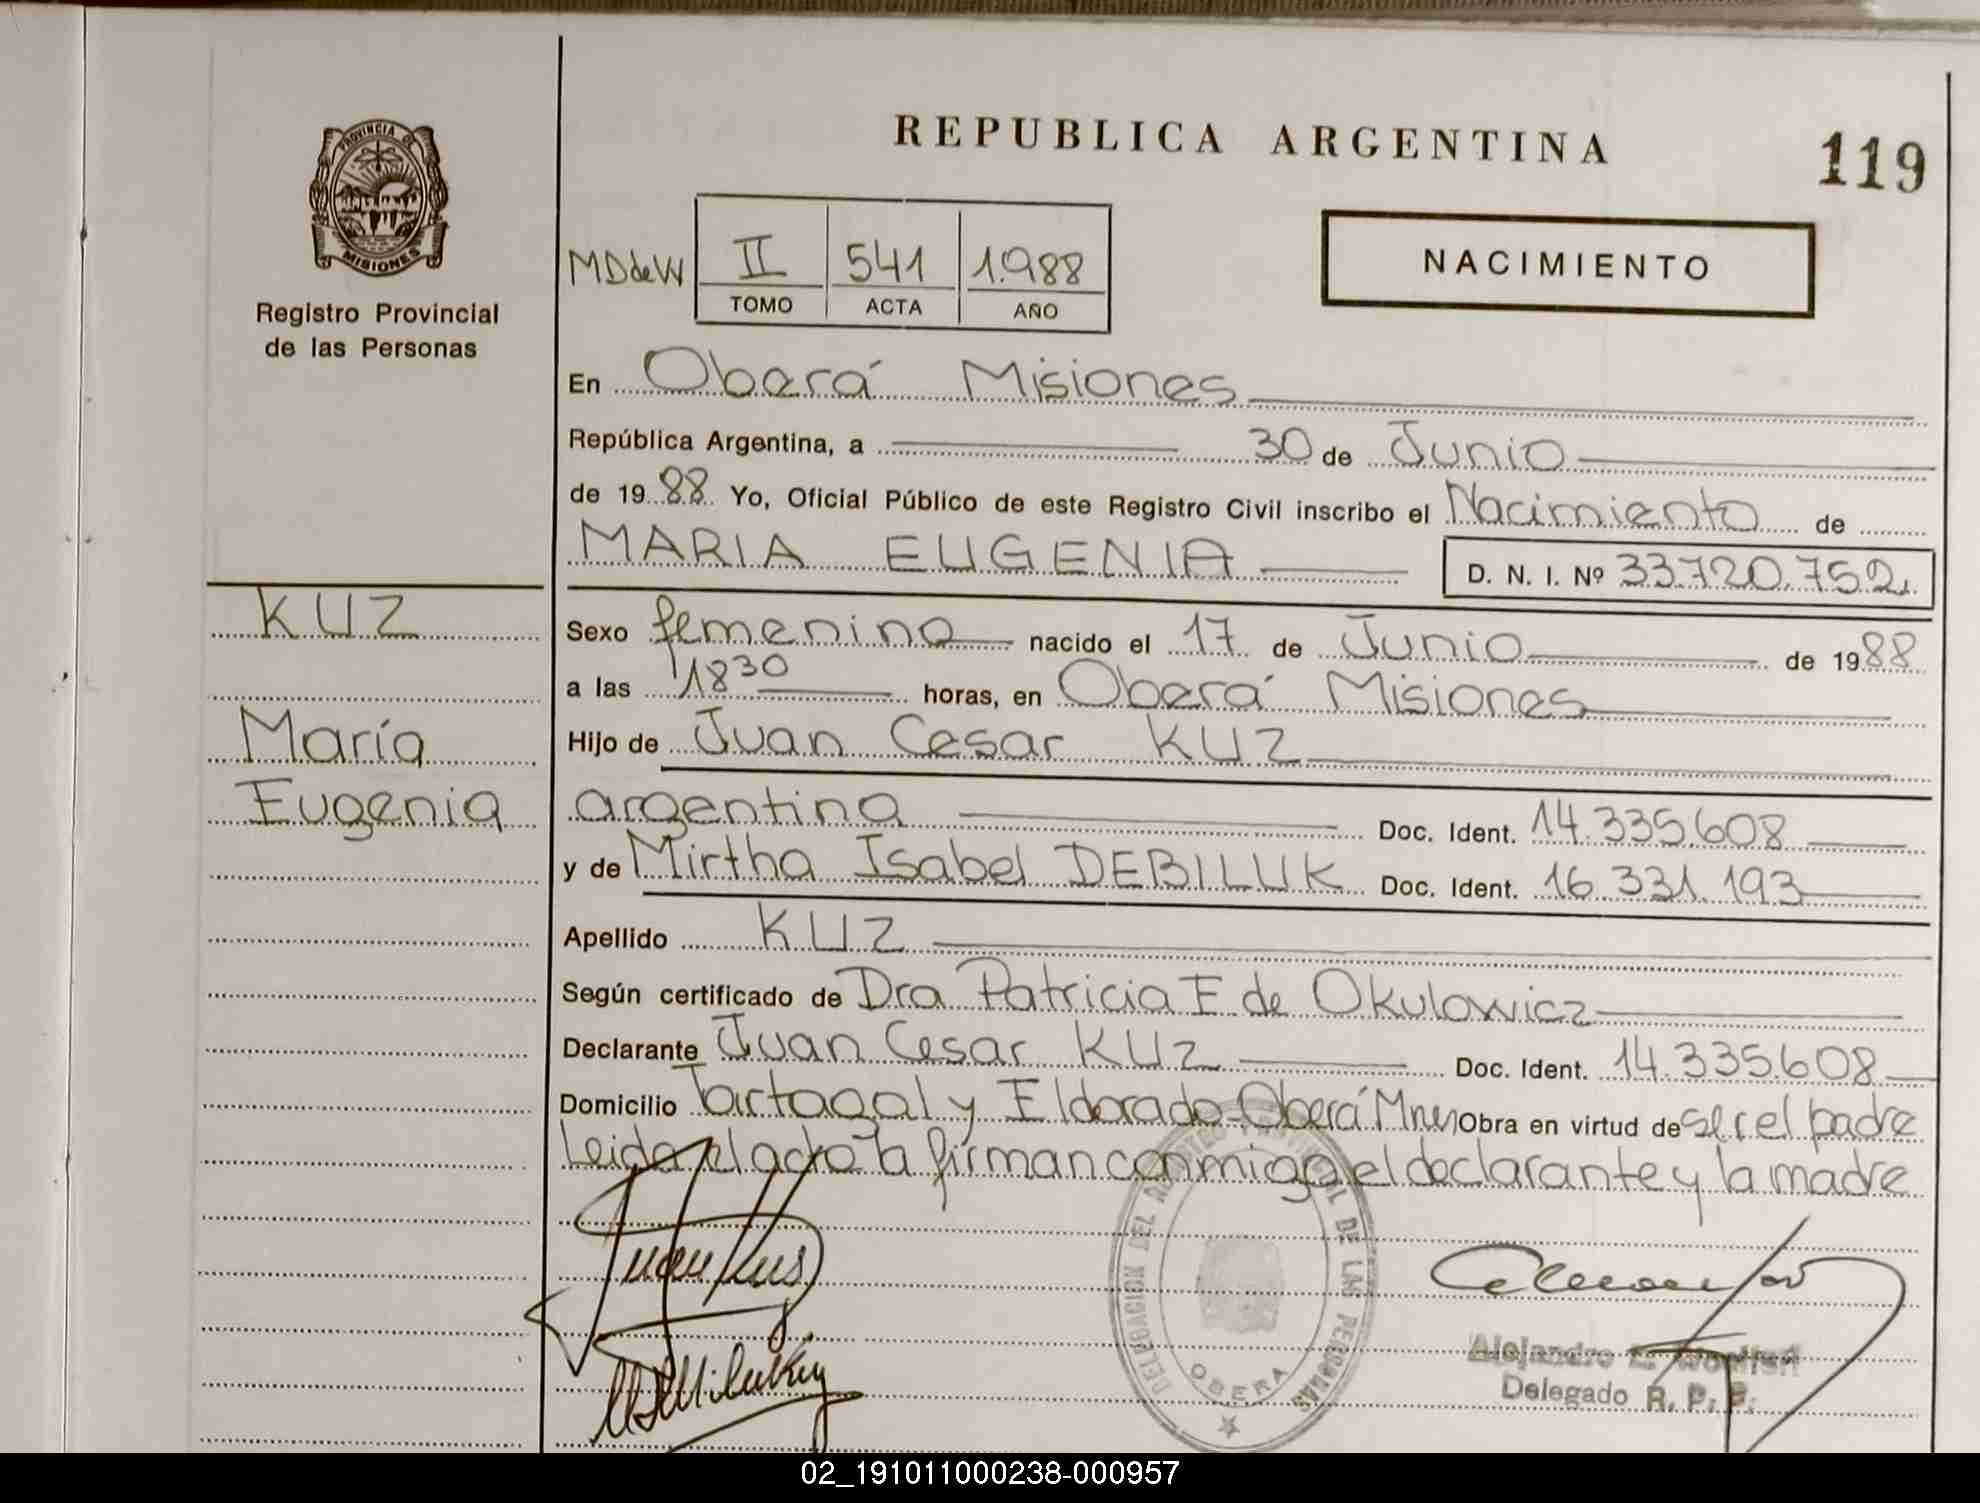 REPUBLICA ARGENTINA
119
PROVINCIA DE
MISIONES
Registro Provincial
de las Personas
MDdeW
II 541 1.988
TOMO ACTA AÑO
NACIMIENTO
En Oberá Misiones
República Argentina, a 30 de Junio
de 1988 Yo, Oficial Público de este Registro Civil inscribo el Nacimiento de
MARIA EUGENIA D. N. I. Nº 33.720.752
KUZ
María
Eugenia
Sexo femenino nacido el 17 de Junio de 1988
a las 18 30 horas, en Oberá Misiones
Hijo de Juan Cesar KUZ
argentino Doc. Ident. 14.335.608
y de Mirtha Isabel DEBILUK Doc. Ident. 16.331.193
Apellido KUZ
Según certificado de Dra Patricia F. de Okulowicz
Declarante Juan Cesar KUZ Doc. Ident. 14.335.608
Domicilio Tartagal y Eldorado Oberá Mnes Obra en virtud de ser el padre
Leida el acta la firman conmigo el declarante y la madre
Juan Kus
DELEGACION DEL REGISTRO PROVINCIAL DE LAS PERSONAS
OBERA
Alejandro
Delegado R. P. P.
02_191011000238-000957